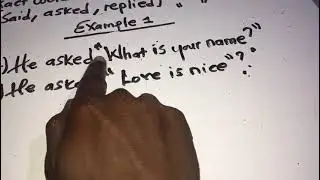 Said, asked, replied, " "
Example 1
He asked "What is your name?"
He asked " Love is nice"?